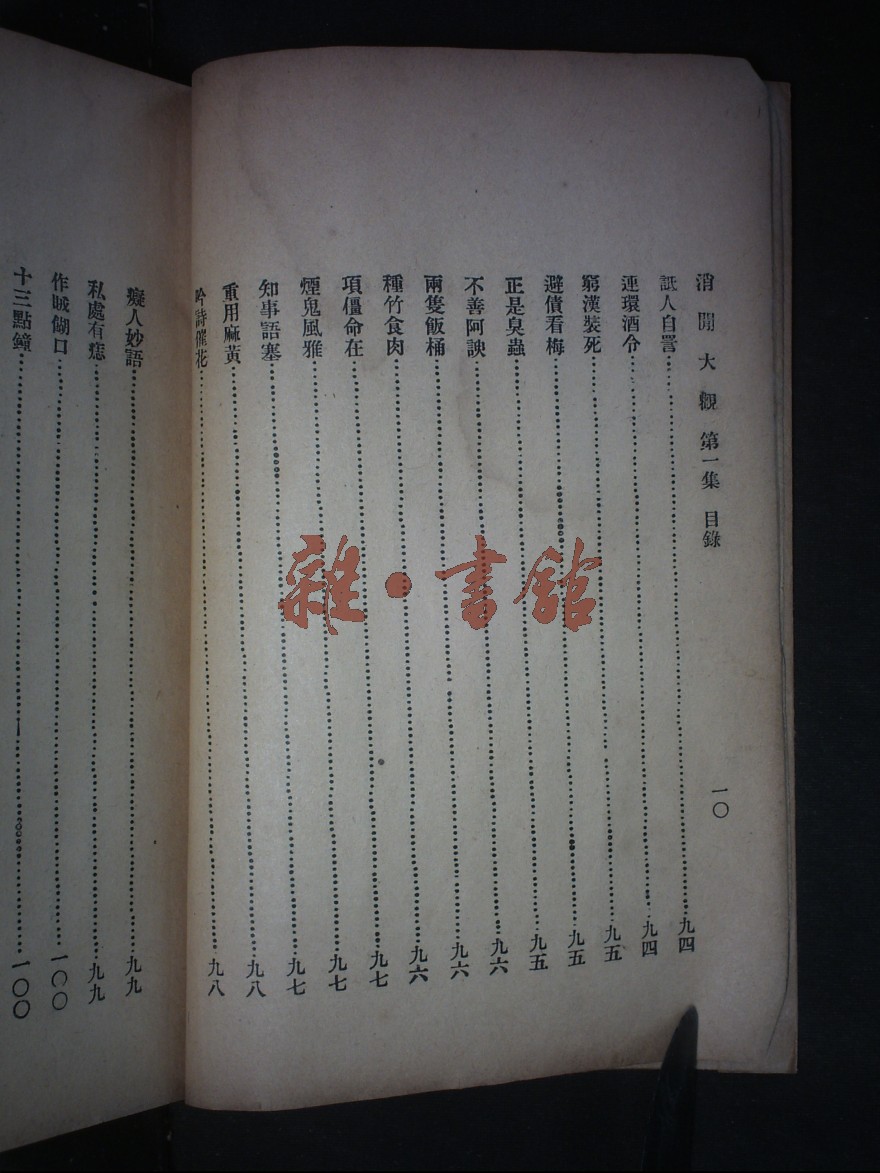 消閒大觀 第一集 目錄 一〇
詆人自詈……九四
連環酒令……九四
窮漢裝死……九五
避債看梅……九五
正是臭蟲……九五
不善阿諛……九六
兩隻飯桶……九六
種竹食肉……九六
項僵命在……九七
煙鬼風雅……九七
知事語塞……九七
重用麻黃……九八
吟詩催花……九八
癡人妙語……九九
私處有痣……九九
作喊餬口……一〇〇
十三點鐘……一〇〇
雜·書館